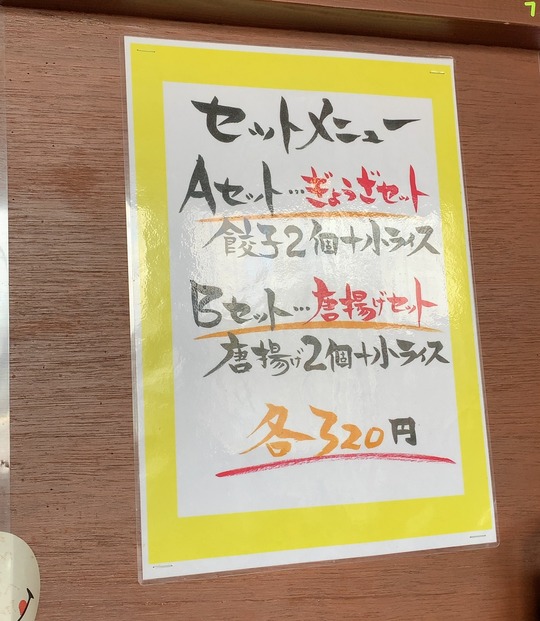 セットメニュー
Aセット…ぎょうざセット
餃子2個+小ライス
Bセット…唐揚げセット
唐揚げ2個+小ライス
各320円
7